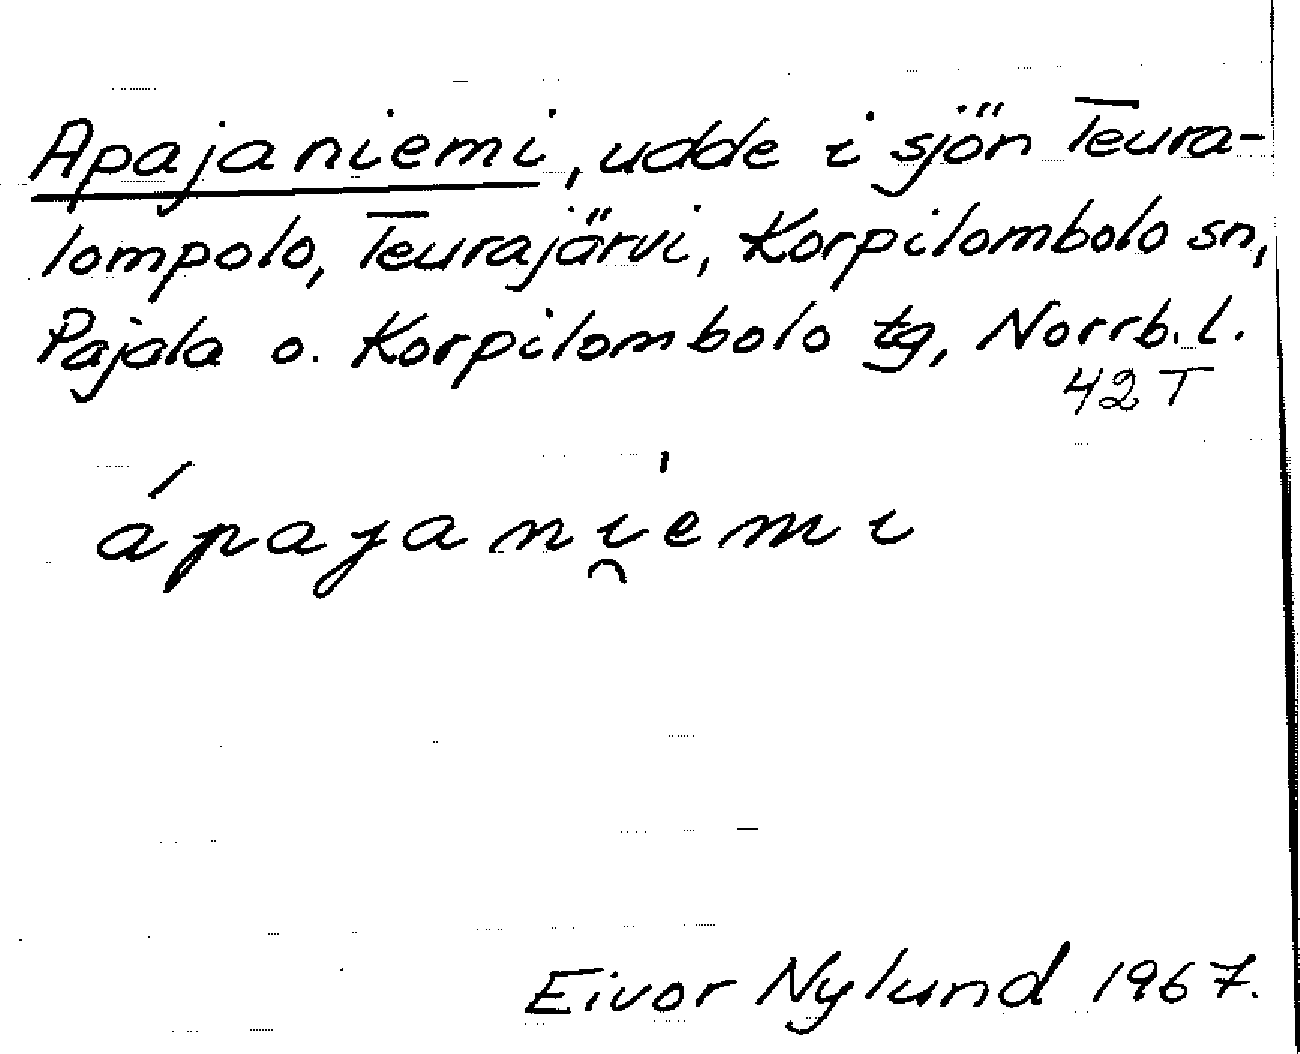 Apajaniemi, udde i sjön Teura-
lompolo, Teurajärvi, Korpilombolo sn,
Pajala o. Korpilombolo tg, Norrb. l.
42 T
ápajani̯emi
Eivor Nylund 1967.